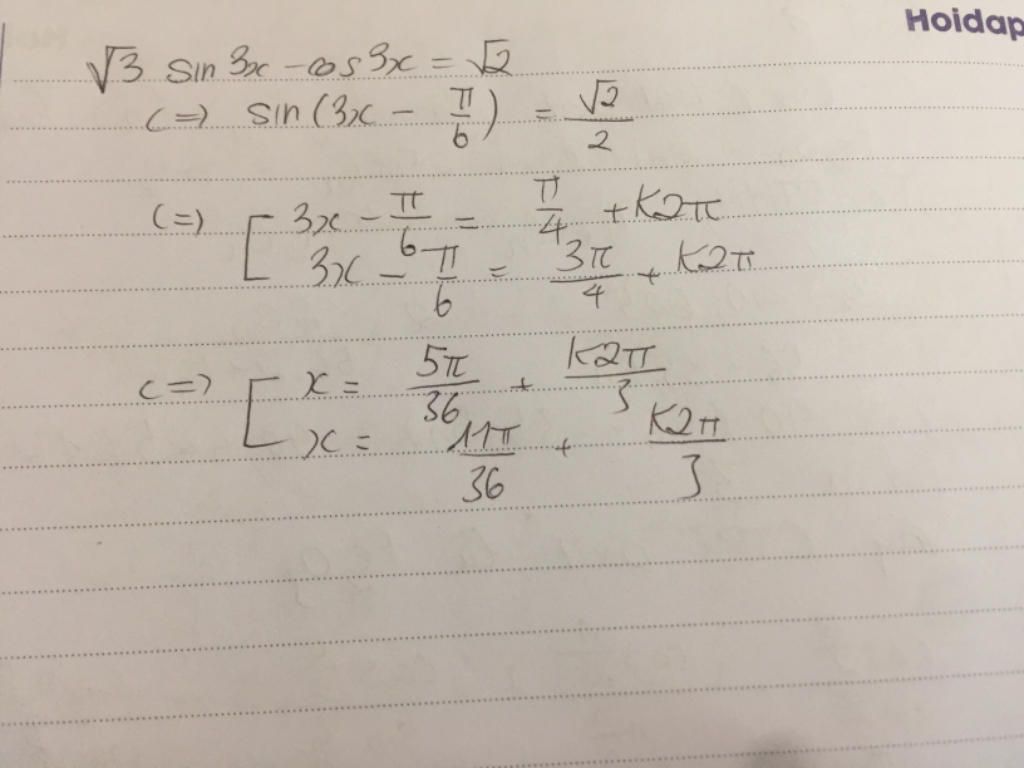 Hoidap
√3 sin 3x - cos 3x = √2
<=> sin (3x - π/6) = √2/2
<=> [ 3x - π/6 = π/4 + K2π
3x - π/6 = 3π/4 + K2π
<=> [ x = 5π/36 + K2π/3
x = 11π/36 + K2π/3